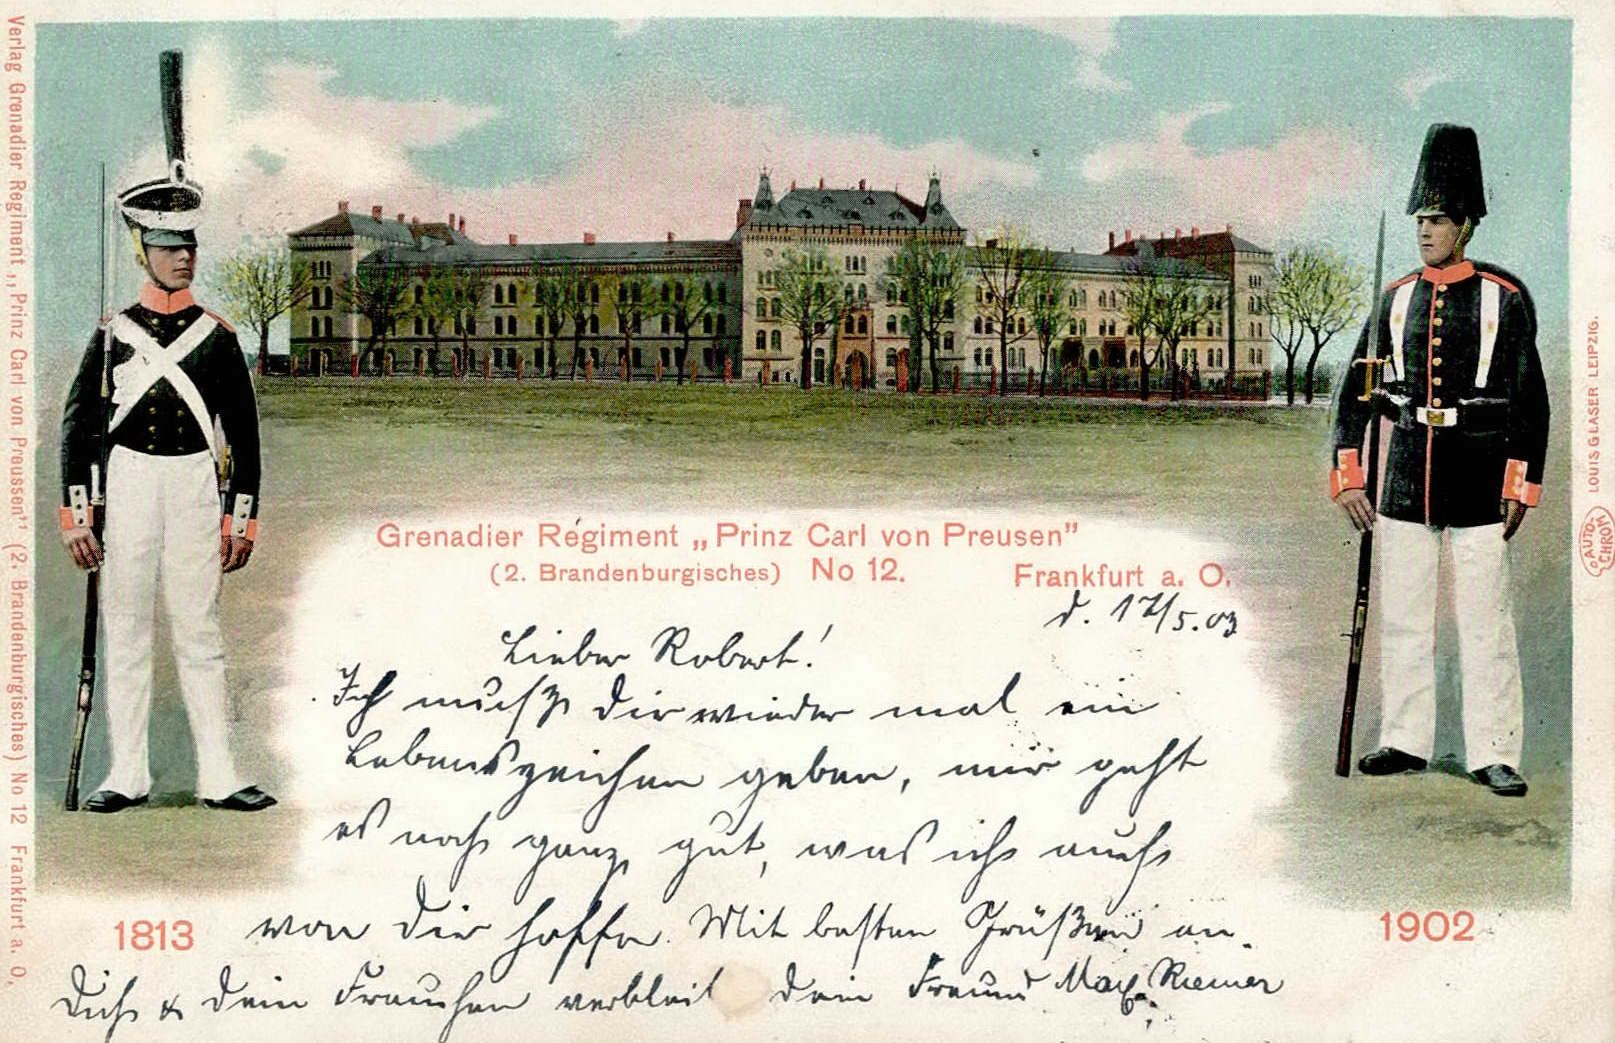 Verlag Grenadier Regiment „Prinz Carl von Preussen" (2. Brandenburgisches) No 12 Frankfurt a. O.
Grenadier Régiment „Prinz Carl von Preusen"
(2. Brandenburgisches) No 12. Frankfurt a. O.
d. 17/5.03
Lieber Robert!
Ich muß Dir wieder mal ein
Lebenszeichen geben, mir geht
es noch ganz gut, was ich auch
von Dir hoffe. Mit besten Grüßen an
Dich & Dein Frauchen verbleibt Dein Freund Max Riemer
1813
1902
LOUIS GLASER LEIPZIG.
AUTO-
CHROM